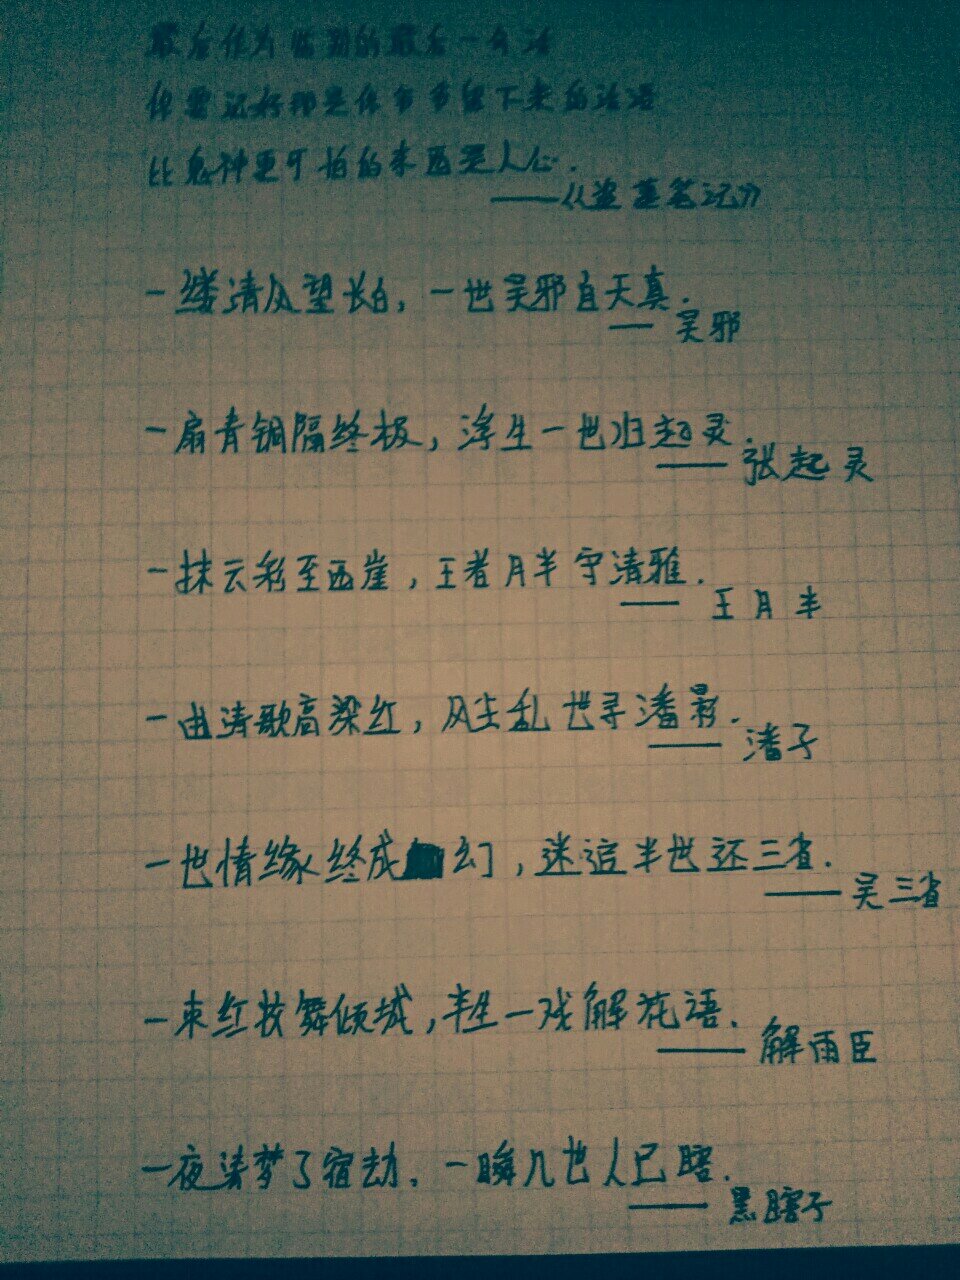 最后作为临别的最后一句话
你要记好那是你爷爷留下来的话语
比鬼神更可怕的东西是人心.
——《盗墓笔记》
一缕清风望长白，一世吴邪自天真.
—— 吴邪
一扇青铜隔终极，浮生一世归起灵.
—— 张起灵
一抹云彩至西崖，王者月半守清雅.
—— 王月半
一曲涛歌高粱红，风尘乱世寻潘影.
—— 潘子
一世情缘终成幻，迷途半世还三省.
—— 吴三省
一束红妆舞倾城，半生一戏解花语.
—— 解雨臣
一夜清梦了宿劫，一瞬几世人已瞎.
—— 黑瞎子